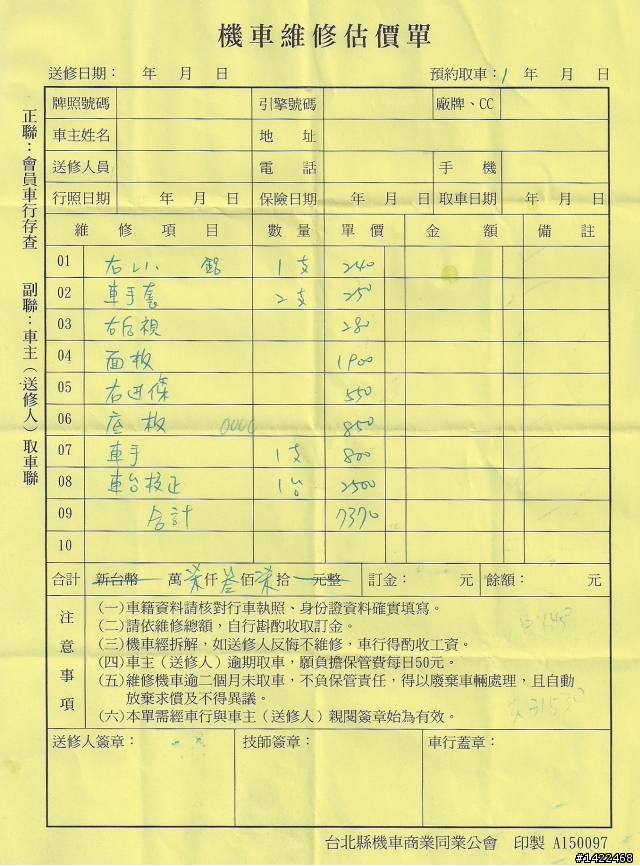 機車維修估價單
送修日期： 年 月 日 預約取車： 年 月 日
牌照號碼 引擎號碼 廠牌、CC
車主姓名 地 址
送修人員 電 話 手 機
行照日期 年 月 日 保險日期 年 月 日 取車日期 年 月 日
維 修 項 目 數 量 單 價 金 額 備 註
01 右 1支 240
02 車手套 2支 250
03 右后視 280
04 面板 1900
05 右 條 550
06 底板 850
07 車手 1支 800
08 車台校正 1台 2500
09 合計 7370
10
合計 新台幣 萬 柒 仟 叁 佰 柒 拾 元整 訂金： 元 餘額： 元
注意事項
(一)車籍資料請核對行車執照、身份證資料確實填寫。
(二)請依維修總額，自行斟酌收取訂金。
(三)機車經拆解，如送修人反悔不維修，車行得酌收工資。
(四)車主（送修人）逾期取車，願負擔保管費每日50元。
(五)維修機車逾二個月未取車，不負保管責任，得以廢棄車輛處理，且自動
放棄求償及不得異議。
(六)本單需經車行與車主（送修人）親閱簽章始為有效。
送修人簽章： 技師簽章： 車行蓋章：
台北縣機車商業同業公會 印製 A150097
正聯：會員車行存查 副聯：車主（送修人）取車聯
#1422468